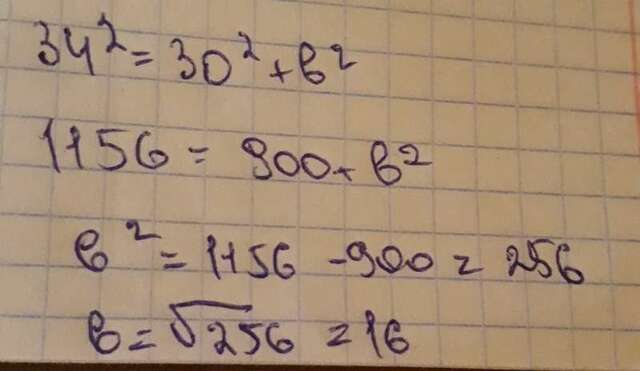 34² = 30² + в²
1156 = 900 + в²
в² = 1156 - 900 = 256
в = √256 = 16